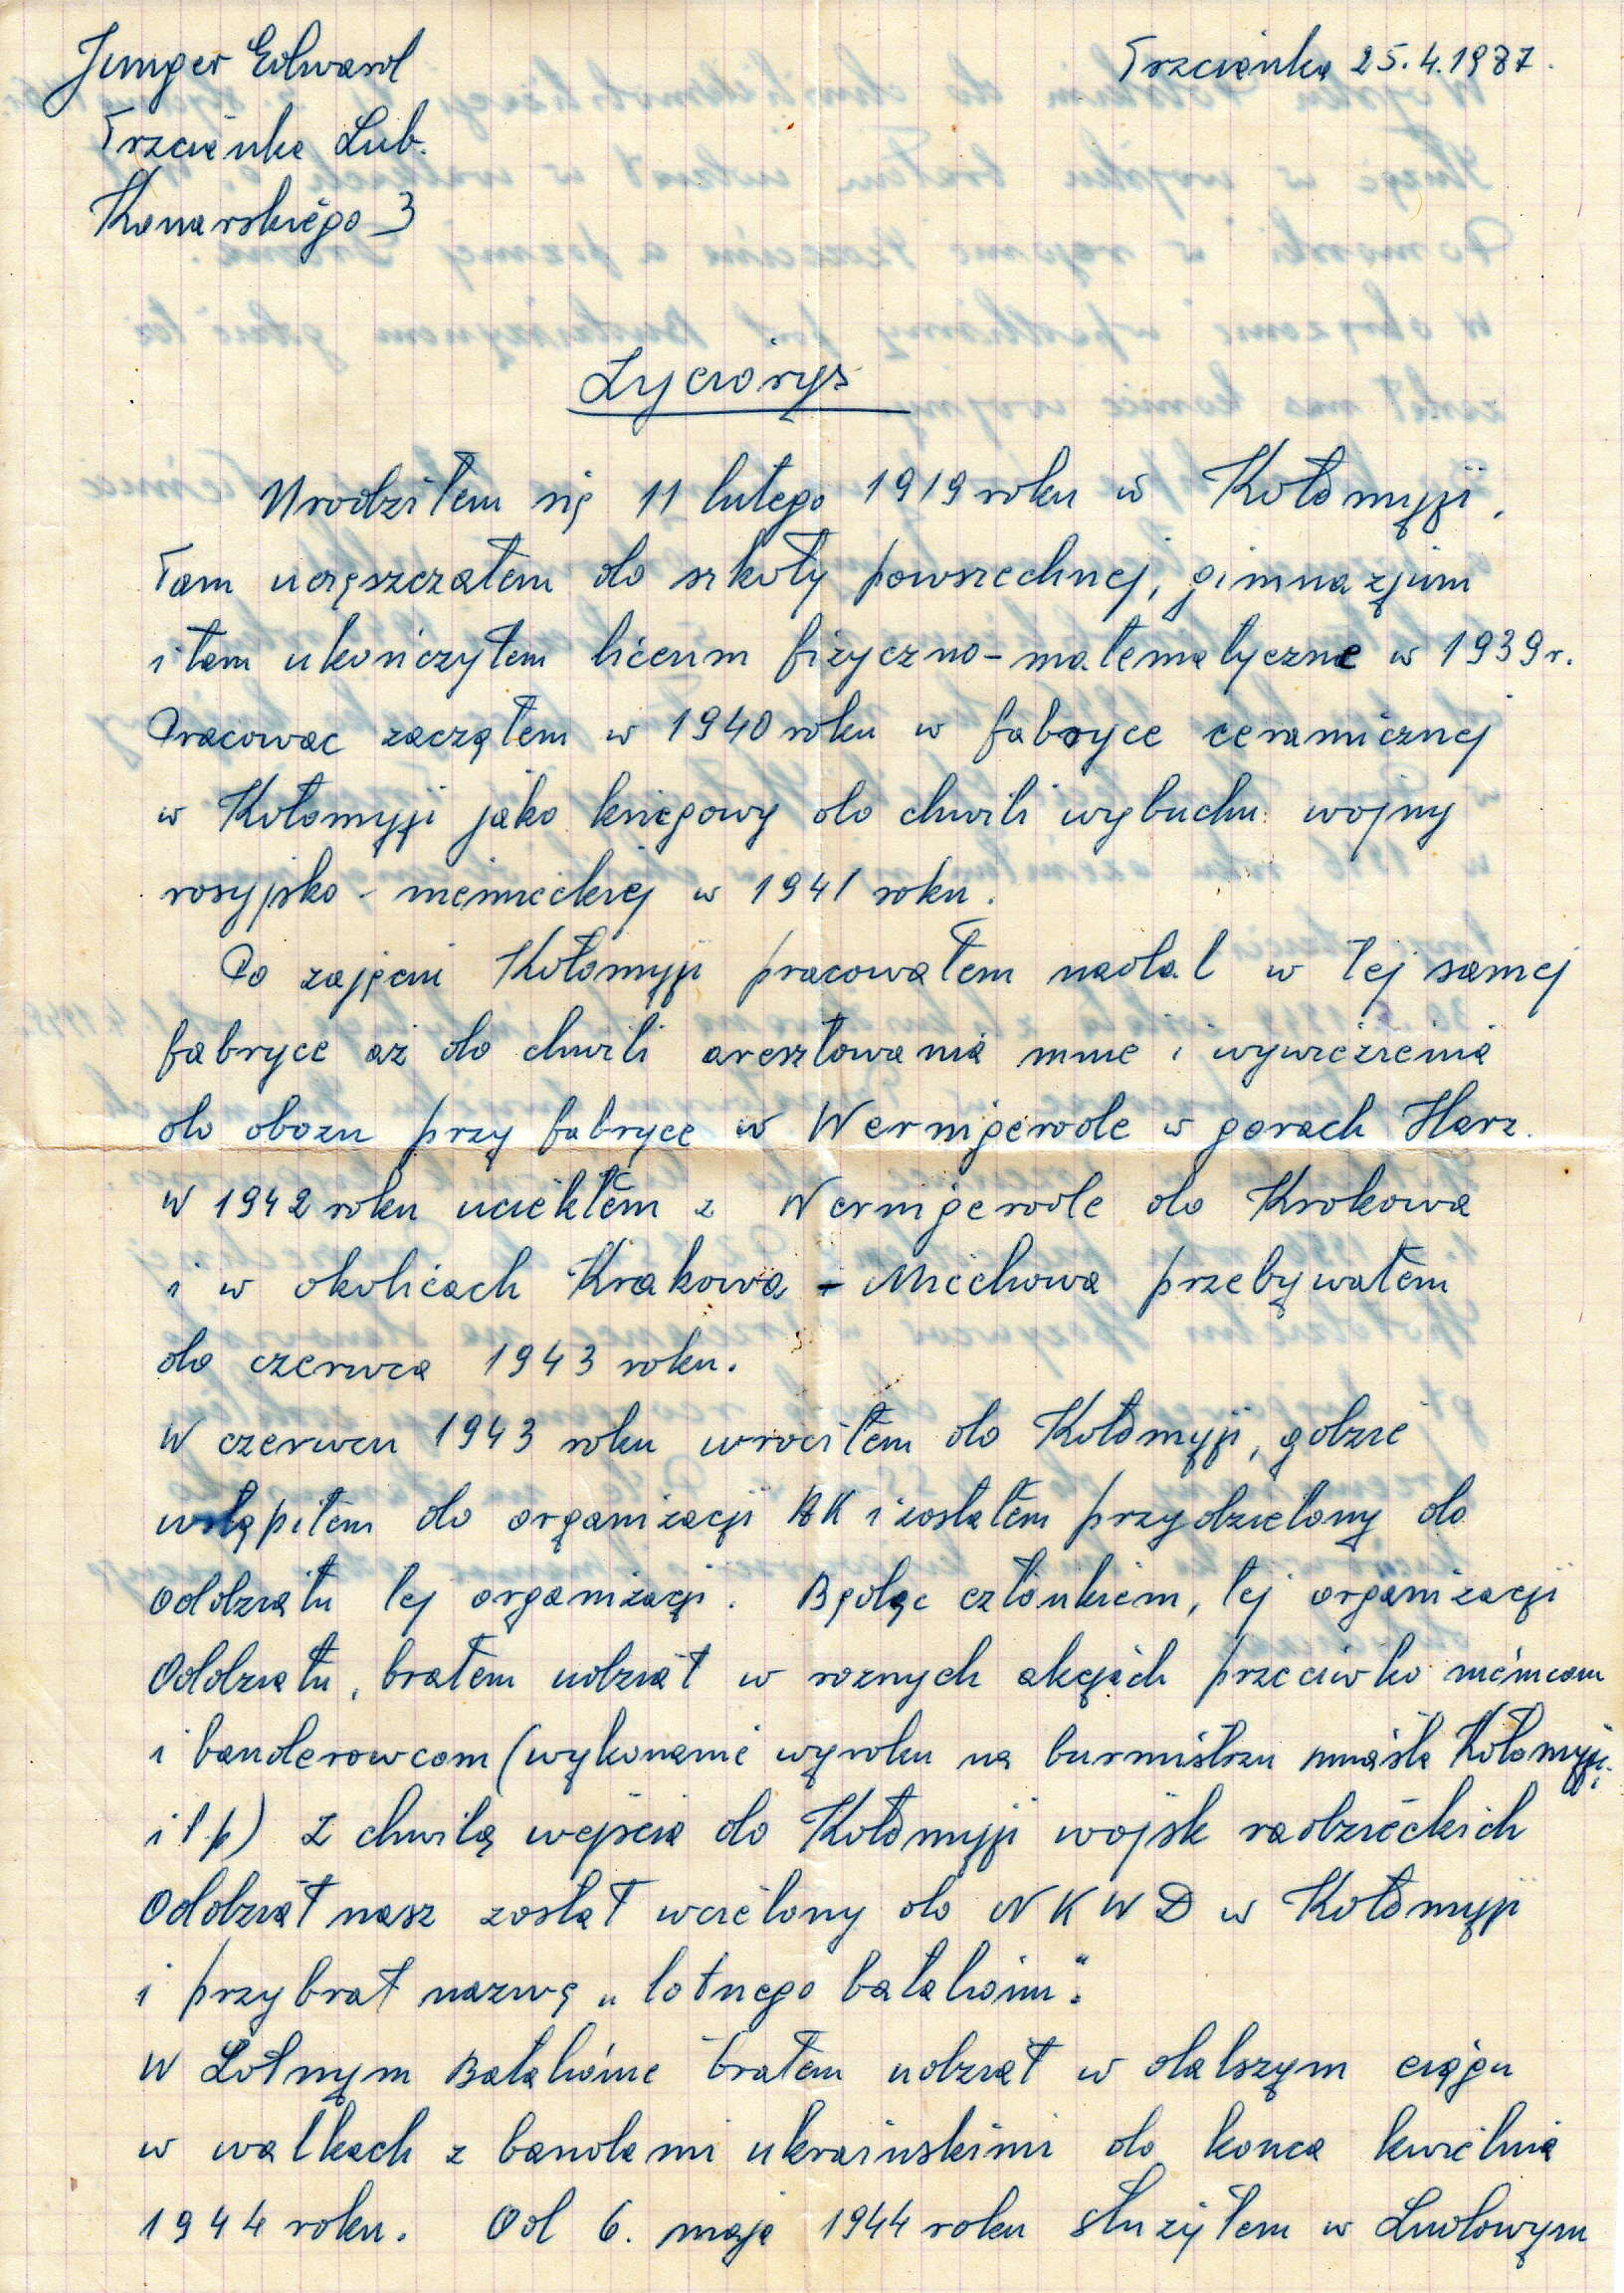 Junger Edward
Trzcianka 25.4.1987.
Trzcianka Lub.
Konarskiego 3
Życiorys
Urodziłem się 11 lutego 1919 roku w Kołomyji.
Tam uczęszczałem do szkoły powszechnej, gimnazjum
i tam ukończyłem liceum fizyczno-matematyczne w 1939 r.
Pracować zacząłem w 1940 roku w fabryce ceramicznej
w Kołomyji jako księgowy do chwili wybuchu wojny
rosyjsko-niemieckiej w 1941 roku.
Po zajęciu Kołomyji pracowałem nadal w tej samej
fabryce aż do chwili aresztowania mnie i wywiezienia
do obozu przy fabryce w Wernigerode w górach Harz.
W 1942 roku uciekłem z Wernigerode do Krakowa
i w okolicach Krakowa - Miechowa przebywałem
do czerwca 1943 roku.
W czerwcu 1943 roku wróciłem do Kołomyji, gdzie
wstąpiłem do organizacji AK i zostałem przydzielony do
Oddziału tej organizacji. Będąc członkiem, tej organizacji
Oddziału, brałem udział w roznych akcjach przeciwko niemcom
i banderowcom (wykonanie wyroku na burmistrzu miasta Kołomyji
i t.p) Z chwilą wejścia do Kołomyji wojsk radzieckich
Oddział nasz został wcielony do NKWD w Kołomyji
i przybrał nazwę „lotnego batalionu".
W Lotnym Batalionie brałem udział w dalszym ciągu
w walkach z bandami ukraińskimi do konca kwietnia
1944 roku. Od 6. maja 1944 roku służyłem w Ludowym